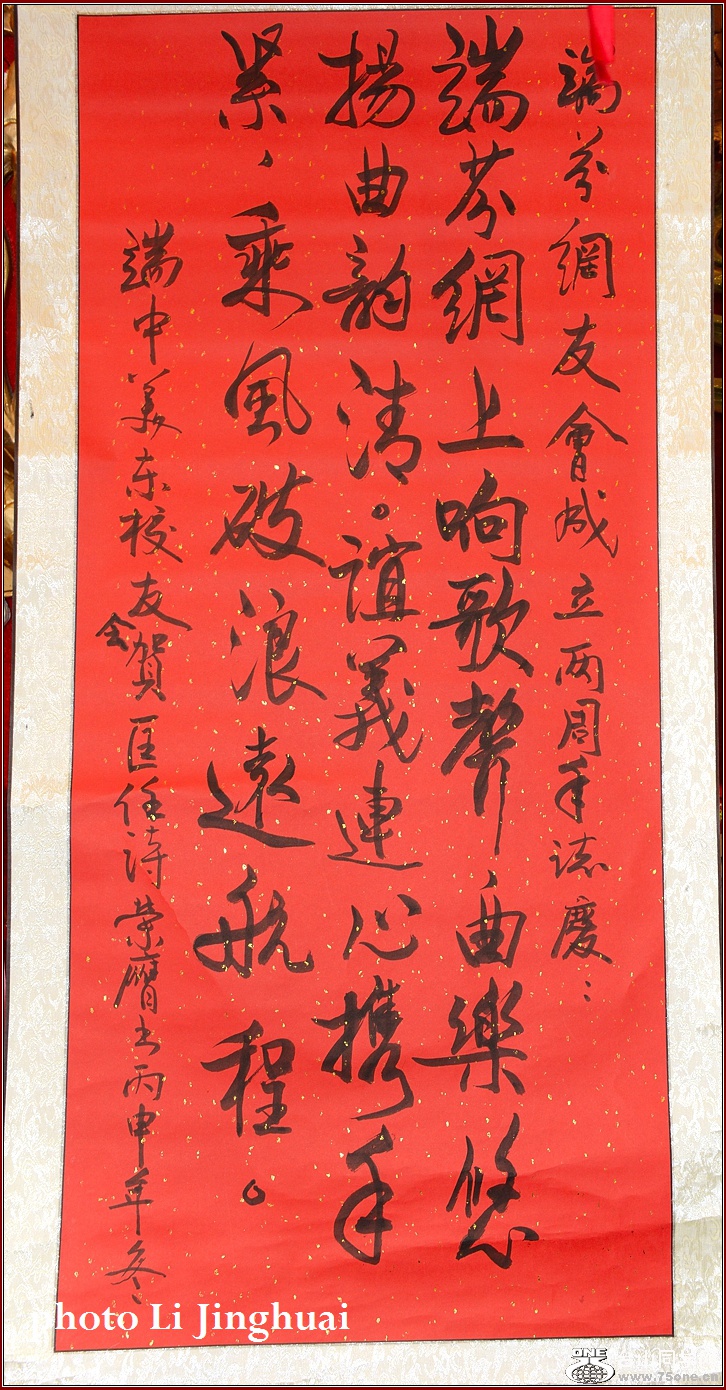 端芬網友會成立两周年誌慶：
端芬網上响歌聲、曲樂悠
揚曲韵清。誼義連心携手
緊、乘風破浪遠航程。
端中美东校友会賀 匡任詩 榮膺书丙申年冬、
photo Li Jinghuai
ONE
www.75one.cn